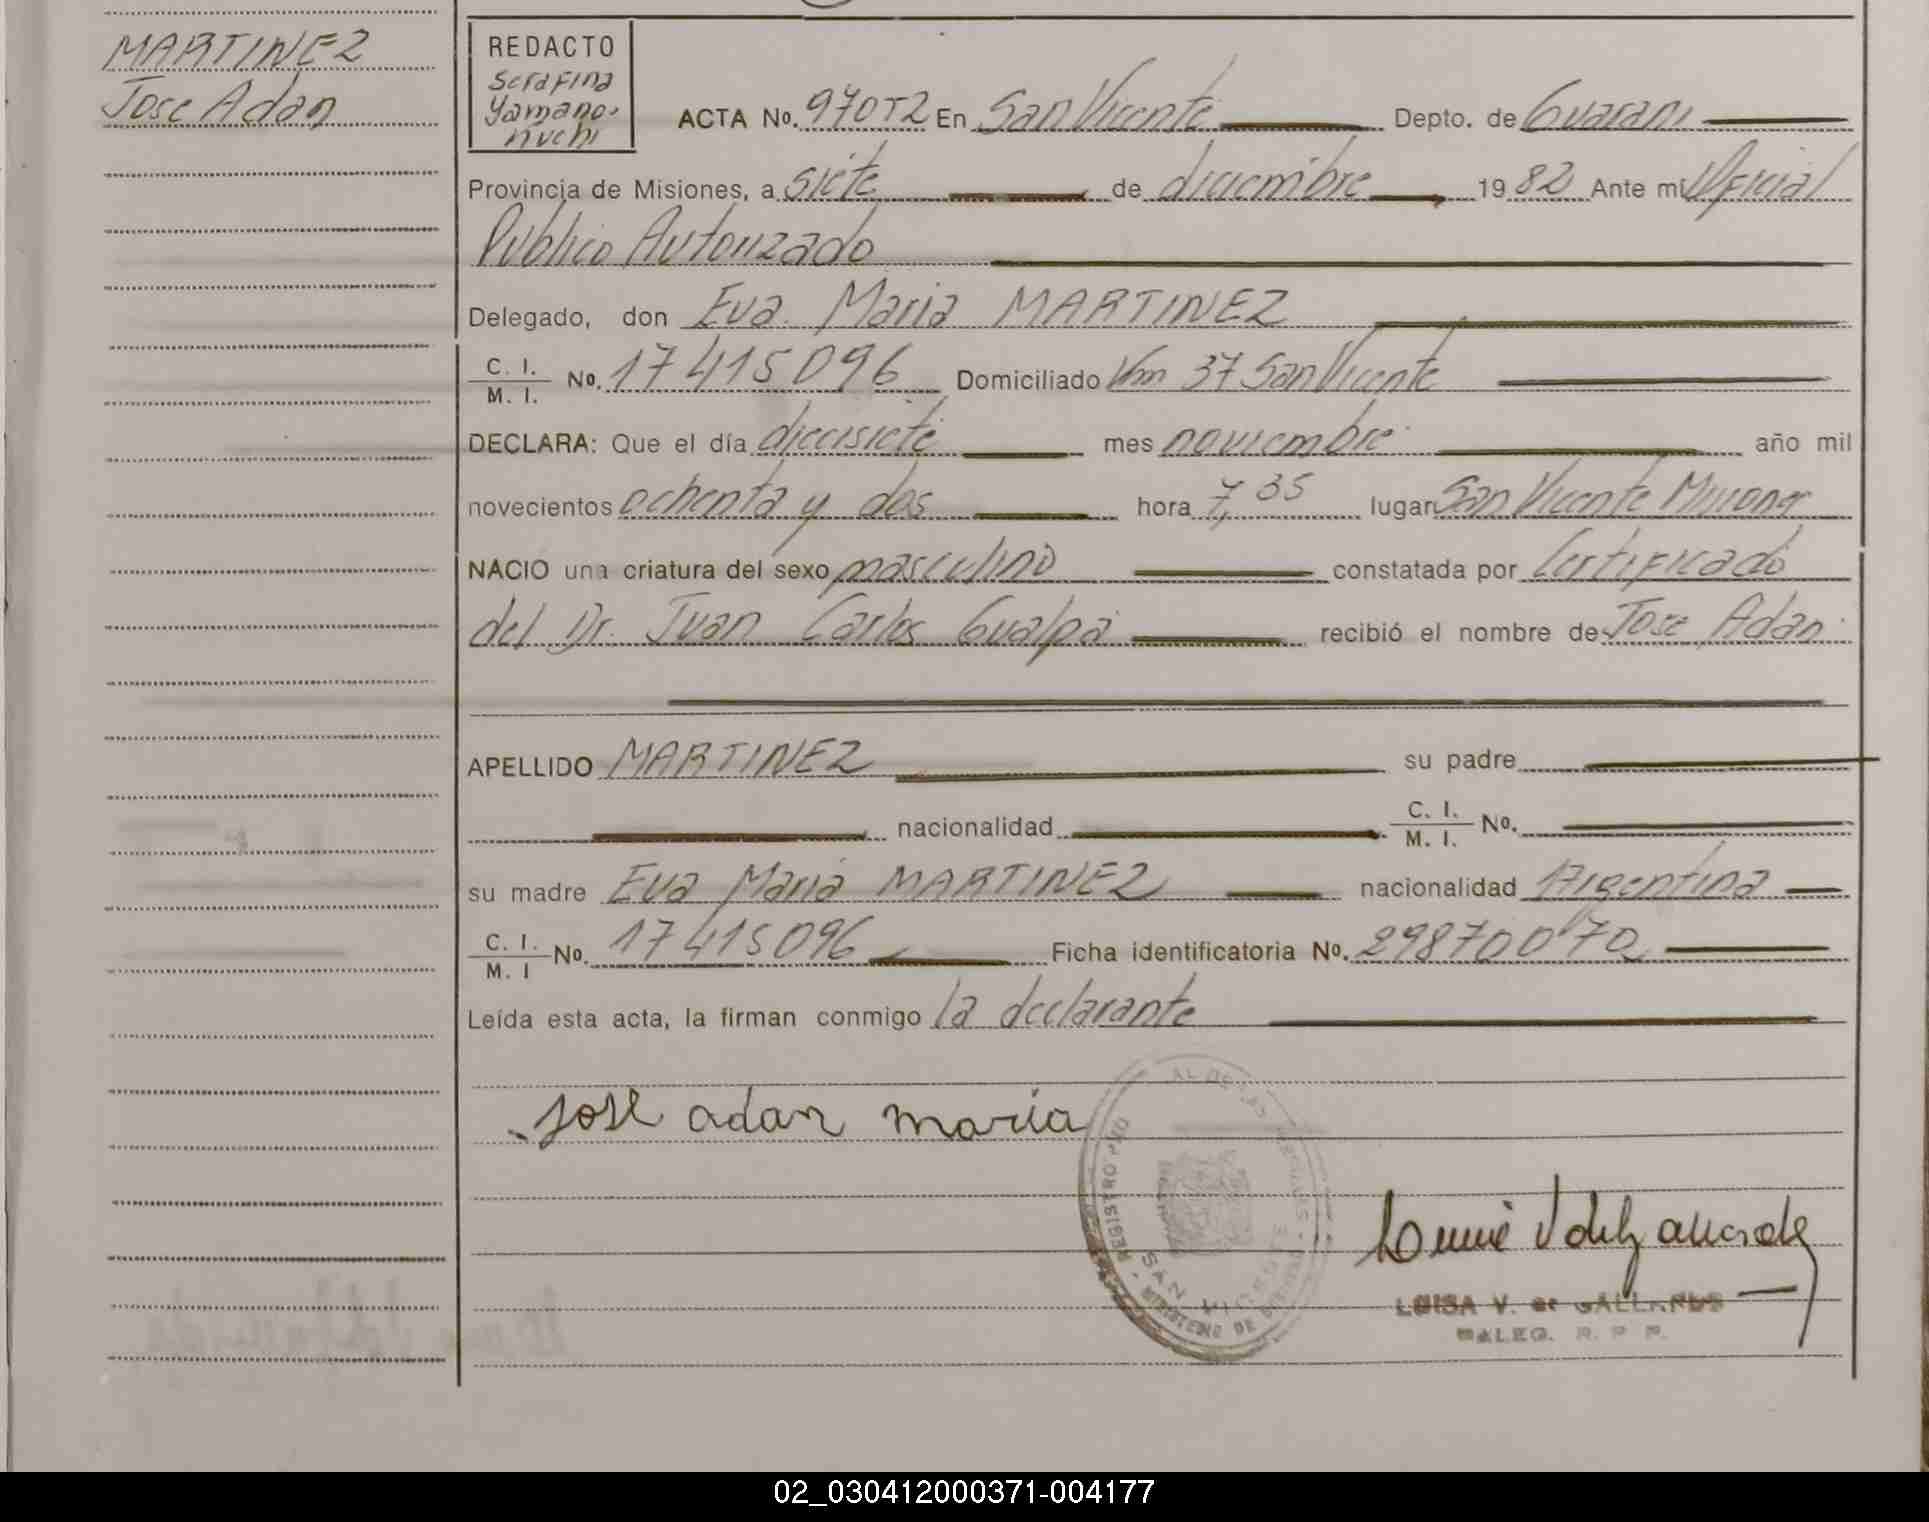 MARTINEZ
Jose Adan
REDACTO
Serafina
Yamano-
nuchi
ACTA No. 970T2 En San Vicente Depto. de Guarani
Provincia de Misiones, a siete de diciembre 1982 Ante mi Oficial
Publico Autorizado
Delegado, don Eva Maria MARTINEZ
C. I. / M. I. No. 17415096 Domiciliado Km 37 San Vicente
DECLARA: Que el día diecisiete mes noviembre año mil
novecientos ochenta y dos hora 7,35 lugar San Vicente Misiones
NACIO una criatura del sexo masculino constatada por Certificado
del Dr. Juan Carlos Gualpa recibió el nombre de Jose Adan
APELLIDO MARTINEZ su padre
nacionalidad C. I. / M. I. No.
su madre Eva Maria MARTINEZ nacionalidad Argentina
C. I. / M. I No. 17415096 Ficha identificatoria No. 29870070
Leída esta acta, la firman conmigo la declarante
jose adan maria
SAN VICENTE
LUISA V. de GALLARDO
DALEG. R. P. P.
02_030412000371-004177